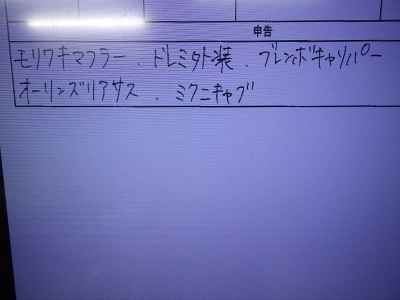 申告
モリワキマフラー、ドレミ外装、ブレンボキャリパー
オーリンズリアサス、ミクニキャブ